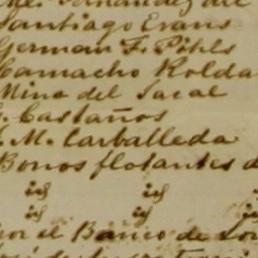 Fernandez del
Santiago Evans
German F. Pihls
Camacho Rolda
Mina del Sacal
S. Castaños
J. M. Carballeda
Bonos flotantes d
id id
id id
por el Banco de Lon